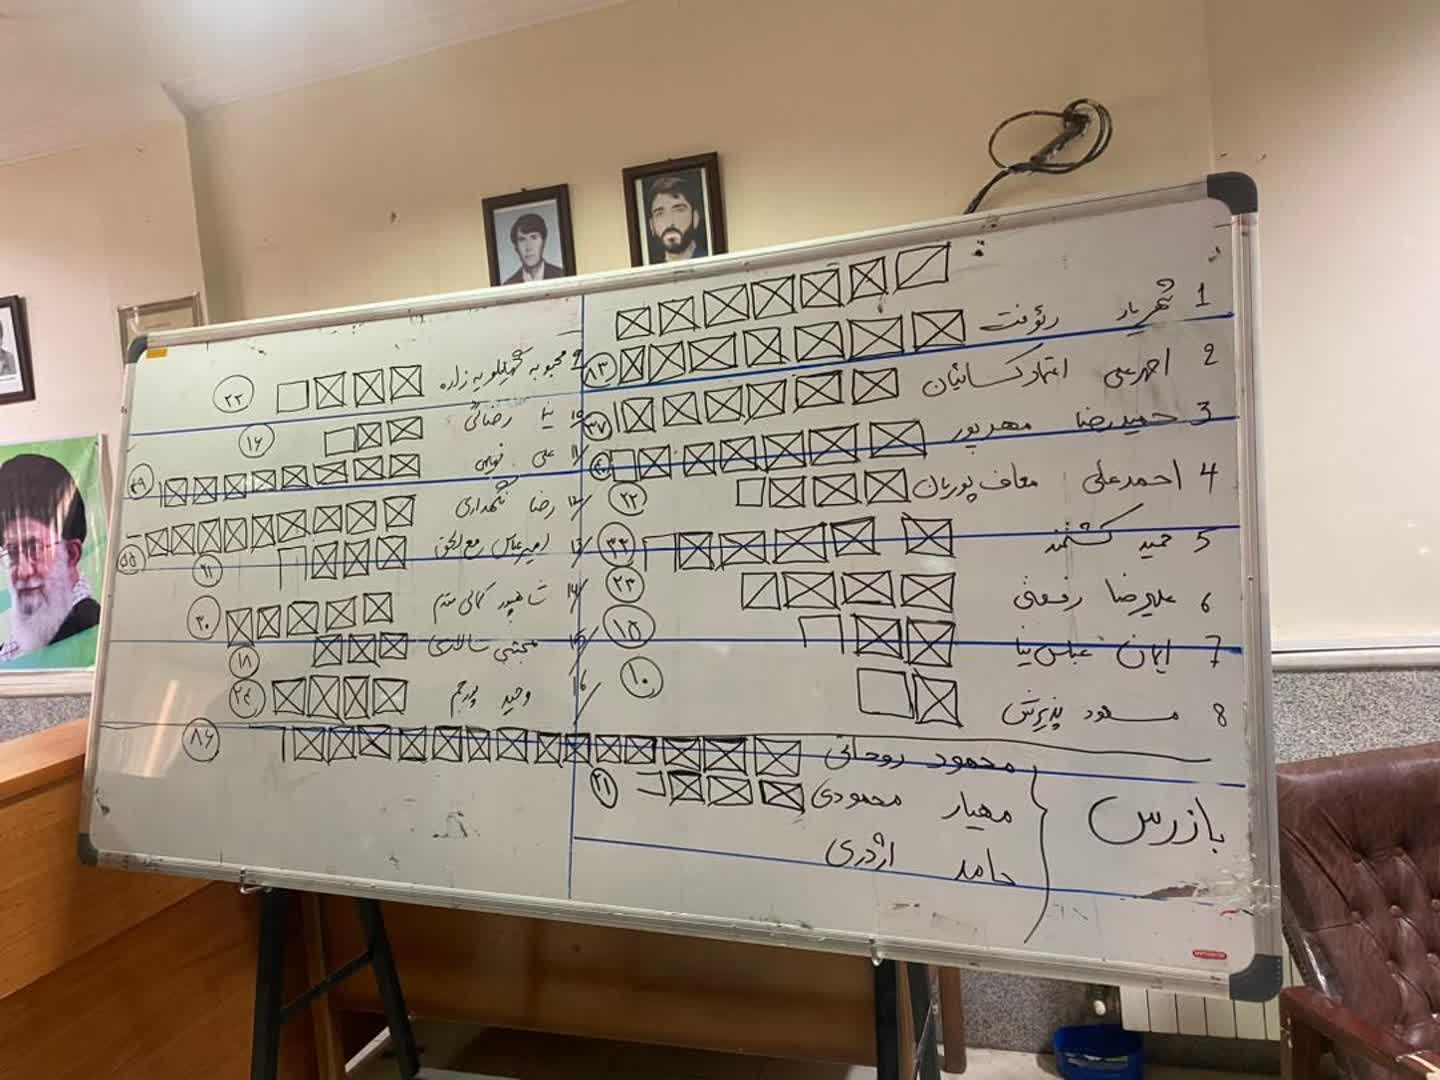 1 شهریار رئوفت ۸۳
2 احمدعلی اعتمادکسائیان ۳۷
3 حمیدرضا مهدپور
4 احمدعلی معاف پوریان ۲۲
5 حمید کشتمند ۳۲
6 علیرضا رفعتی ۲۳
7 ایمان عباس نیا ۱۵
8 مسعود پذیرش ۱۰
9 محبوبه کهیلویه زاده ۲۲
10 رضائی ۱۶
11 علی ۳۹
12 رضا نگهداری ۵۵
13 امیرعباس رفع الحق ۲۱
14 شاهپور کمالی مقدم ۳۰
15 مجتبی سالاری ۱۸
16 وحید پورجم ۲۴
بازرس
محمود روحانی ۸۶
مهیار محمودی ۲۱
حامد اژدری